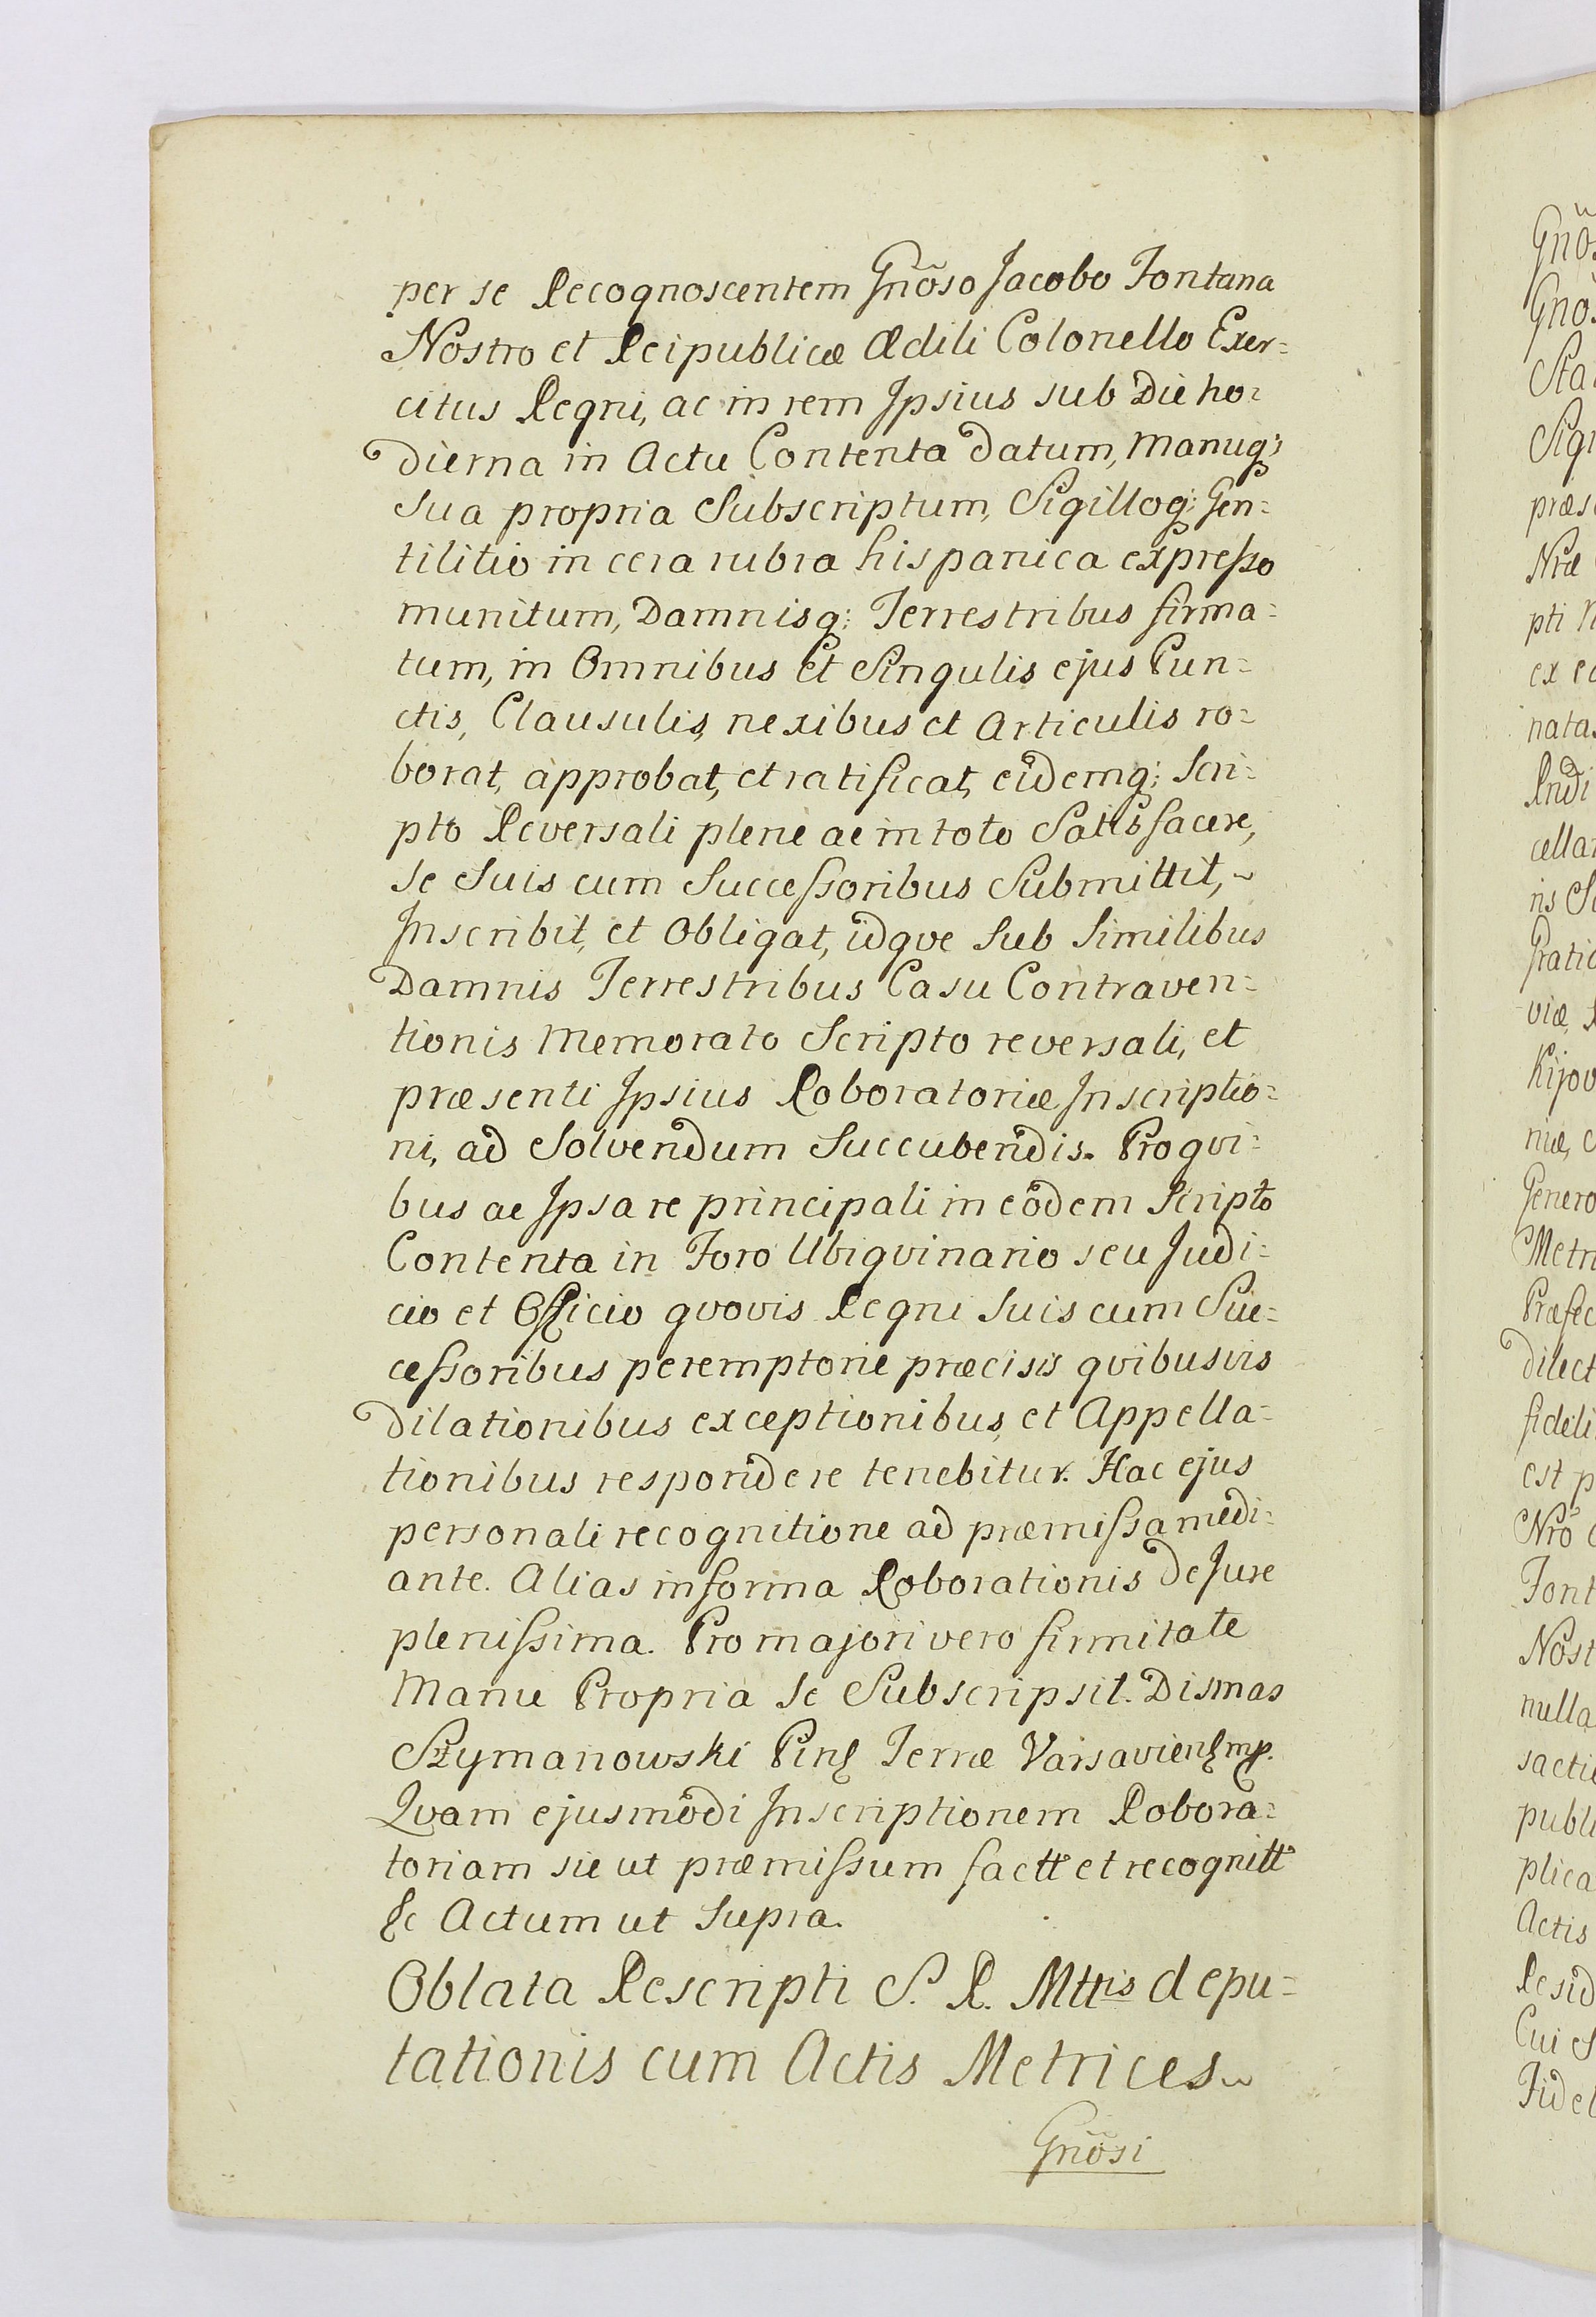 per se Recognoscentem Gnõso Jacobo Fontana
Nostro et Reipublicæ Ædili Colonello Exer=
citus Regni, ac in rem Ipsius sub Die ho=
dierna in Actu Contenta datum, Manuq;
sua propria Subscriptum, Sigilloq; Gen=
tilitio in cera rubra hispanica expresso
munitum, Damnisq; Terrestribus firma=
tum, in Omnibus et Singulis ejus Pun=
ctis, Clausulis, nexibus et Articulis ro=
borat, approbat, et ratificat, eidemq; Scri=
pto Reversali plene ac in toto Satisfacere,
Se Suis cum Successoribus Submittit, ~
Inscribit, et Obligat, idqve Sub Similibus
Damnis Terrestribus Casu Contraven=
tionis Memorato Scripto reversali, et
præsenti Ipsius Roboratoriæ Inscriptio=
ni, ad Solvendum Succubendis. Pro qvi=
bus ac Ipsa re principali in eodem Scripto
Contenta in Foro Ubiqvinario seu Judi=
cio et Officio qvovis Regni Suis cum Suc=
cessoribus peremptorie præcisis qvibusvis
dilationibus exceptionibus, et Appella=
tionibus respondere tenebitur. Hac ejus
personali recognitione ad præmissa medi=
ante. Alias in forma Roborationis de Jure
plenissima. Pro majori vero firmitate
Manu Propria Se Subscripsit. Dismas
Szymanowski Pinc Terræ Varsaviens mp.
Qvam ejusmodi Inscriptionem Robora=
toriam sic ut præmissum factt et recognitt
&c Actum ut Supra.
Oblata Rescripti S. R. Mttis depu=
tationis cum Actis Metrices ~
Gnõsi
Gnõs
Gnõs
Sta
Sigi
præs
Nræ
pti N
ex e
nata
Rndi
cella
ris S
Gratio
viæ,
Kijov
niæ, c
Genero
Metri
Præfec
dilect
fideli
est p
Nro
Font
Nost
nulla
sacti
publi
plica
Actis
Resid
Cui S
Fidel